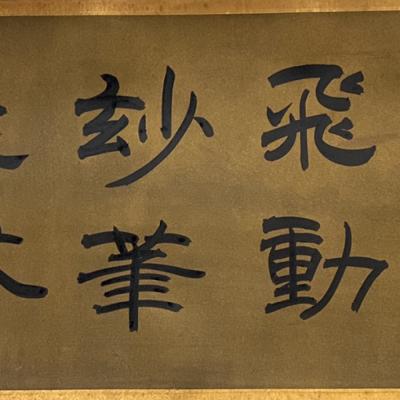 飛動
玅筆